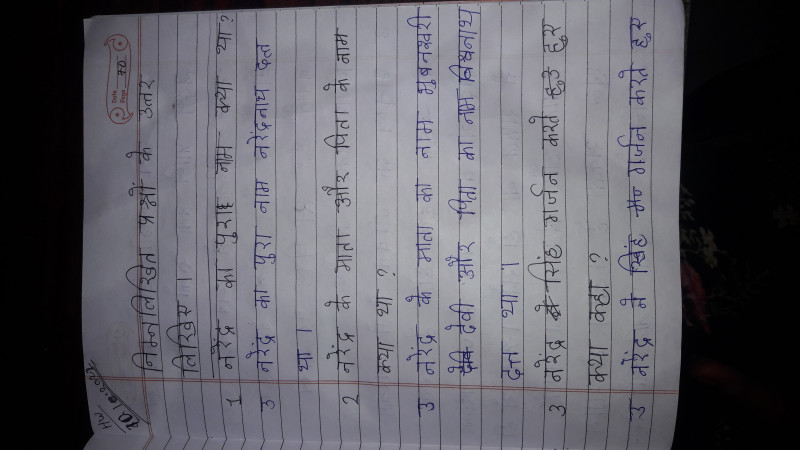 HW
Date
Page 70
निम्नलिखित प्रश्नों के उत्तर
लिखिए ।
1 नरेंद्र का पुरा नाम क्या था?
उ नरेंद्र का पुरा नाम नरेंद्रनाथ दत्त
था ।
2 नरेंद्र के माता और पिता के नाम
क्या था ?
उ नरेंद्र के माता का नाम भुवनश्वरी
देवी और पिता का नाम विश्वनाथ
दत्त था ।
3 नरेंद्र ने सिंह गर्जन करते हुए
क्या कहा ?
उ नरेंद्र ने सिंह गर्जन करते हुए